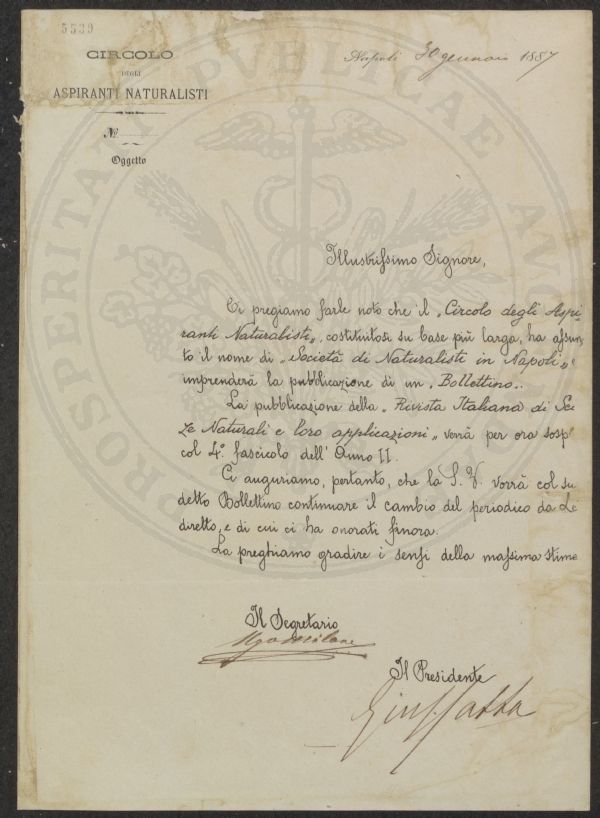 5539
CIRCOLO
DEGLI
ASPIRANTI NATURALISTI
Nº
Oggetto
Napoli 30 gennaio 1887
PROSPERITATI PUBLICAE
Illustrissimo Signore,
Ci pregiamo farle noto che il „Circolo degli Aspi-
ranti Naturalisti„, costituitosi su base più larga, ha assun-
to il nome di „Società di Naturalisti in Napoli„ e
imprenderà la pubblicazione di un „Bollettino„.
La pubblicazione della „Rivista Italiana di Sci
ze Naturali e loro applicazioni„ verrà per ora sosp
col 4º fascicolo dell' Anno II.
Ci auguriamo, pertanto, che la S. V. vorrà col su
detto Bollettino continuare il cambio del periodico da Le
diretto, e di cui ci ha onorati finora.
La preghiamo gradire i sensi della massima stima
Il Segretario
Ugo Milone
Il Presidente